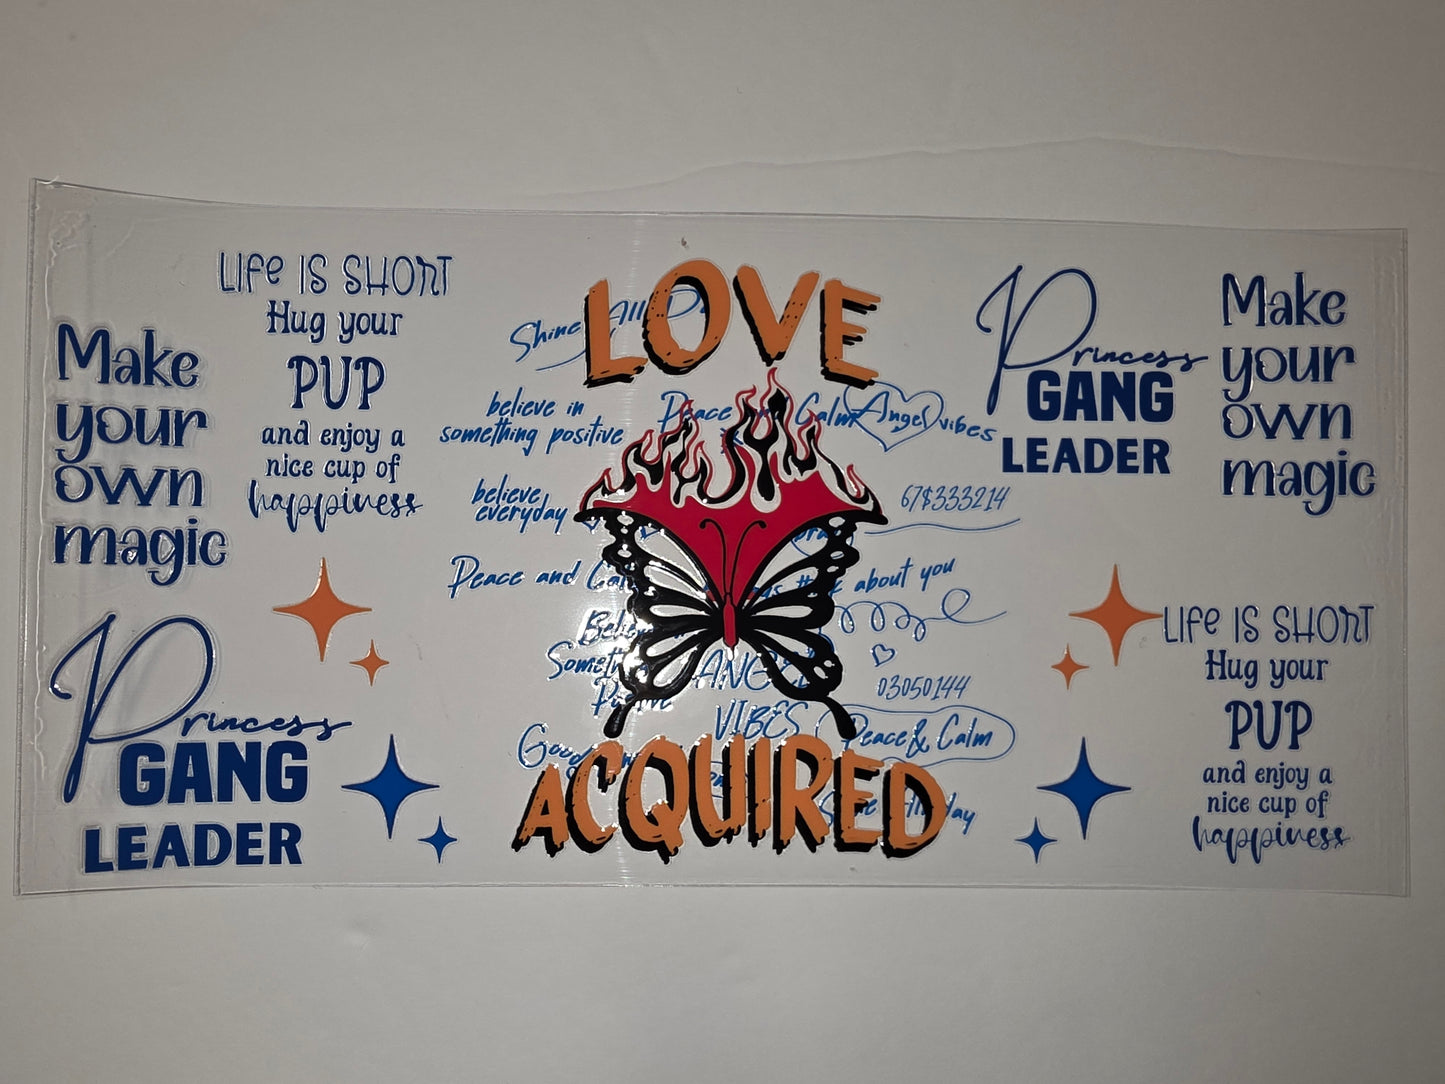 Make
your
own
magic
LIFE IS SHORT
Hug your
PUP
and enjoy a
nice cup of
happiness
Princess
GANG
LEADER
LOVE
Shine All
believe in
something positive
Peace
Calm
Angel vibes
believe
everyday
67$333214
Peace and
about you
ANGEL
VIBES
03050144
Peace & Calm
Good
day
ACQUIRED
Princess
GANG
LEADER
Make
your
own
magic
LIFE IS SHORT
Hug your
PUP
and enjoy a
nice cup of
happiness